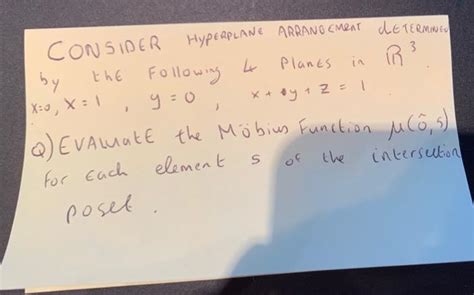 CONSIDER HYPERPLANE ARRANGEMENT dETERMINED
by thE Following 4 Planes in ℝ³
x=0, x=1 , y=0 , x+y+z=1
Q) EVALUATE the Möbius Function μ(ô,s)
for each element s of the intersection
poset .